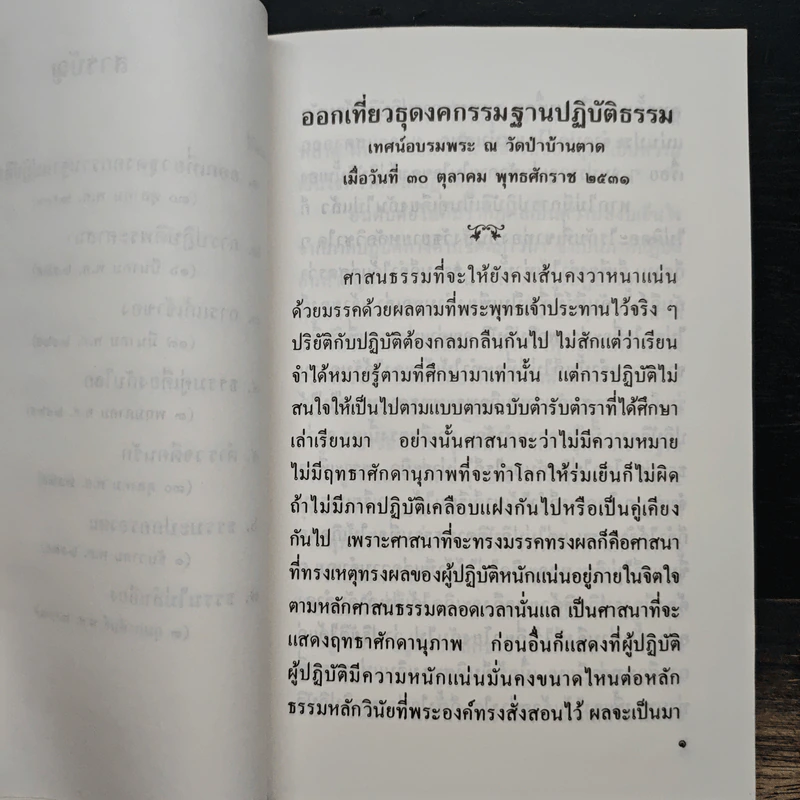 ออกเที่ยวธุดงคกรรมฐานปฏิบัติธรรม
เทศน์อบรมพระ ณ วัดป่าบ้านตาด
เมื่อวันที่ ๓๐ ตุลาคม พุทธศักราช ๒๕๓๑
ศาสนธรรมที่จะให้ยังคงเส้นคงวาหนาแน่น
ด้วยมรรคด้วยผลตามที่พระพุทธเจ้าประทานไว้จริง ๆ
ปริยัติกับปฏิบัติต้องกลมกลืนกันไป ไม่สักแต่ว่าเรียน
จำได้หมายรู้ตามที่ศึกษามาเท่านั้น แต่การปฏิบัติไม่
สนใจให้เป็นไปตามแบบตามฉบับตำรับตำราที่ได้ศึกษา
เล่าเรียนมา อย่างนั้นศาสนาจะว่าไม่มีความหมาย
ไม่มีฤทธาศักดานุภาพที่จะทำโลกให้ร่มเย็นก็ไม่ผิด
ถ้าไม่มีภาคปฏิบัติเคลือบแฝงกันไปหรือเป็นคู่เคียง
กันไป เพราะศาสนาที่จะทรงมรรคทรงผลก็คือศาสนา
ที่ทรงเหตุทรงผลของผู้ปฏิบัติหนักแน่นอยู่ภายในจิตใจ
ตามหลักศาสนธรรมตลอดเวลานั่นแล เป็นศาสนาที่จะ
แสดงฤทธาศักดานุภาพ ก่อนอื่นก็แสดงที่ผู้ปฏิบัติ
ผู้ปฏิบัติมีความหนักแน่นมั่นคงขนาดไหนต่อหลัก
ธรรมหลักวินัยที่พระองค์ทรงสั่งสอนไว้ ผลจะเป็นมา
๑